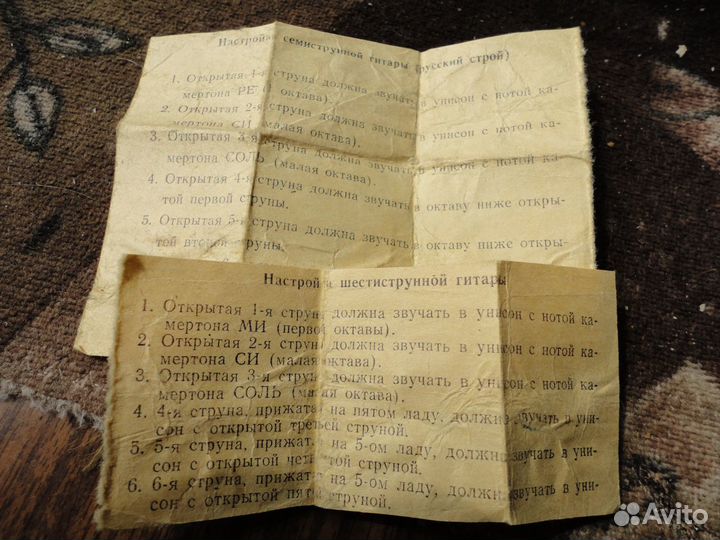 Настройка семиструнной гитары (русский строй)
1. Открытая 1-я струна должна звучать в унисон с нотой ка-
мертона РЕ ( октава).
2. Открытая 2-я струна должна звучать в унисон с нотой ка-
мертона СИ (малая октава).
3. Открытая 3-я струна должна звучать в унисон с нотой ка-
мертона СОЛЬ (малая октава).
4. Открытая 4-я струна должна звучать в октаву ниже откры-
той первой струны.
5. Открытая 5-я струна должна звучать в октаву ниже откры-
той второй струны.
Настройка шестиструнной гитары
1. Открытая 1-я струна должна звучать в унисон с нотой ка-
мертона МИ (первой октавы).
2. Открытая 2-я струна должна звучать в унисон с нотой ка-
мертона СИ (малая октава).
3. Открытая 3-я струна должна звучать в унисон с нотой ка-
мертона СОЛЬ (малая октава).
4. 4-я струна, прижатая на пятом ладу, должна звучать в уни-
сон с открытой третьей струной.
5. 5-я струна, прижатая на 5-ом ладу, должна звучать в уни-
сон с открытой четвертой струной.
6. 6-я струна, прижатая на 5-ом ладу, должна звучать в уни-
сон с открытой пятой струной.
Avito